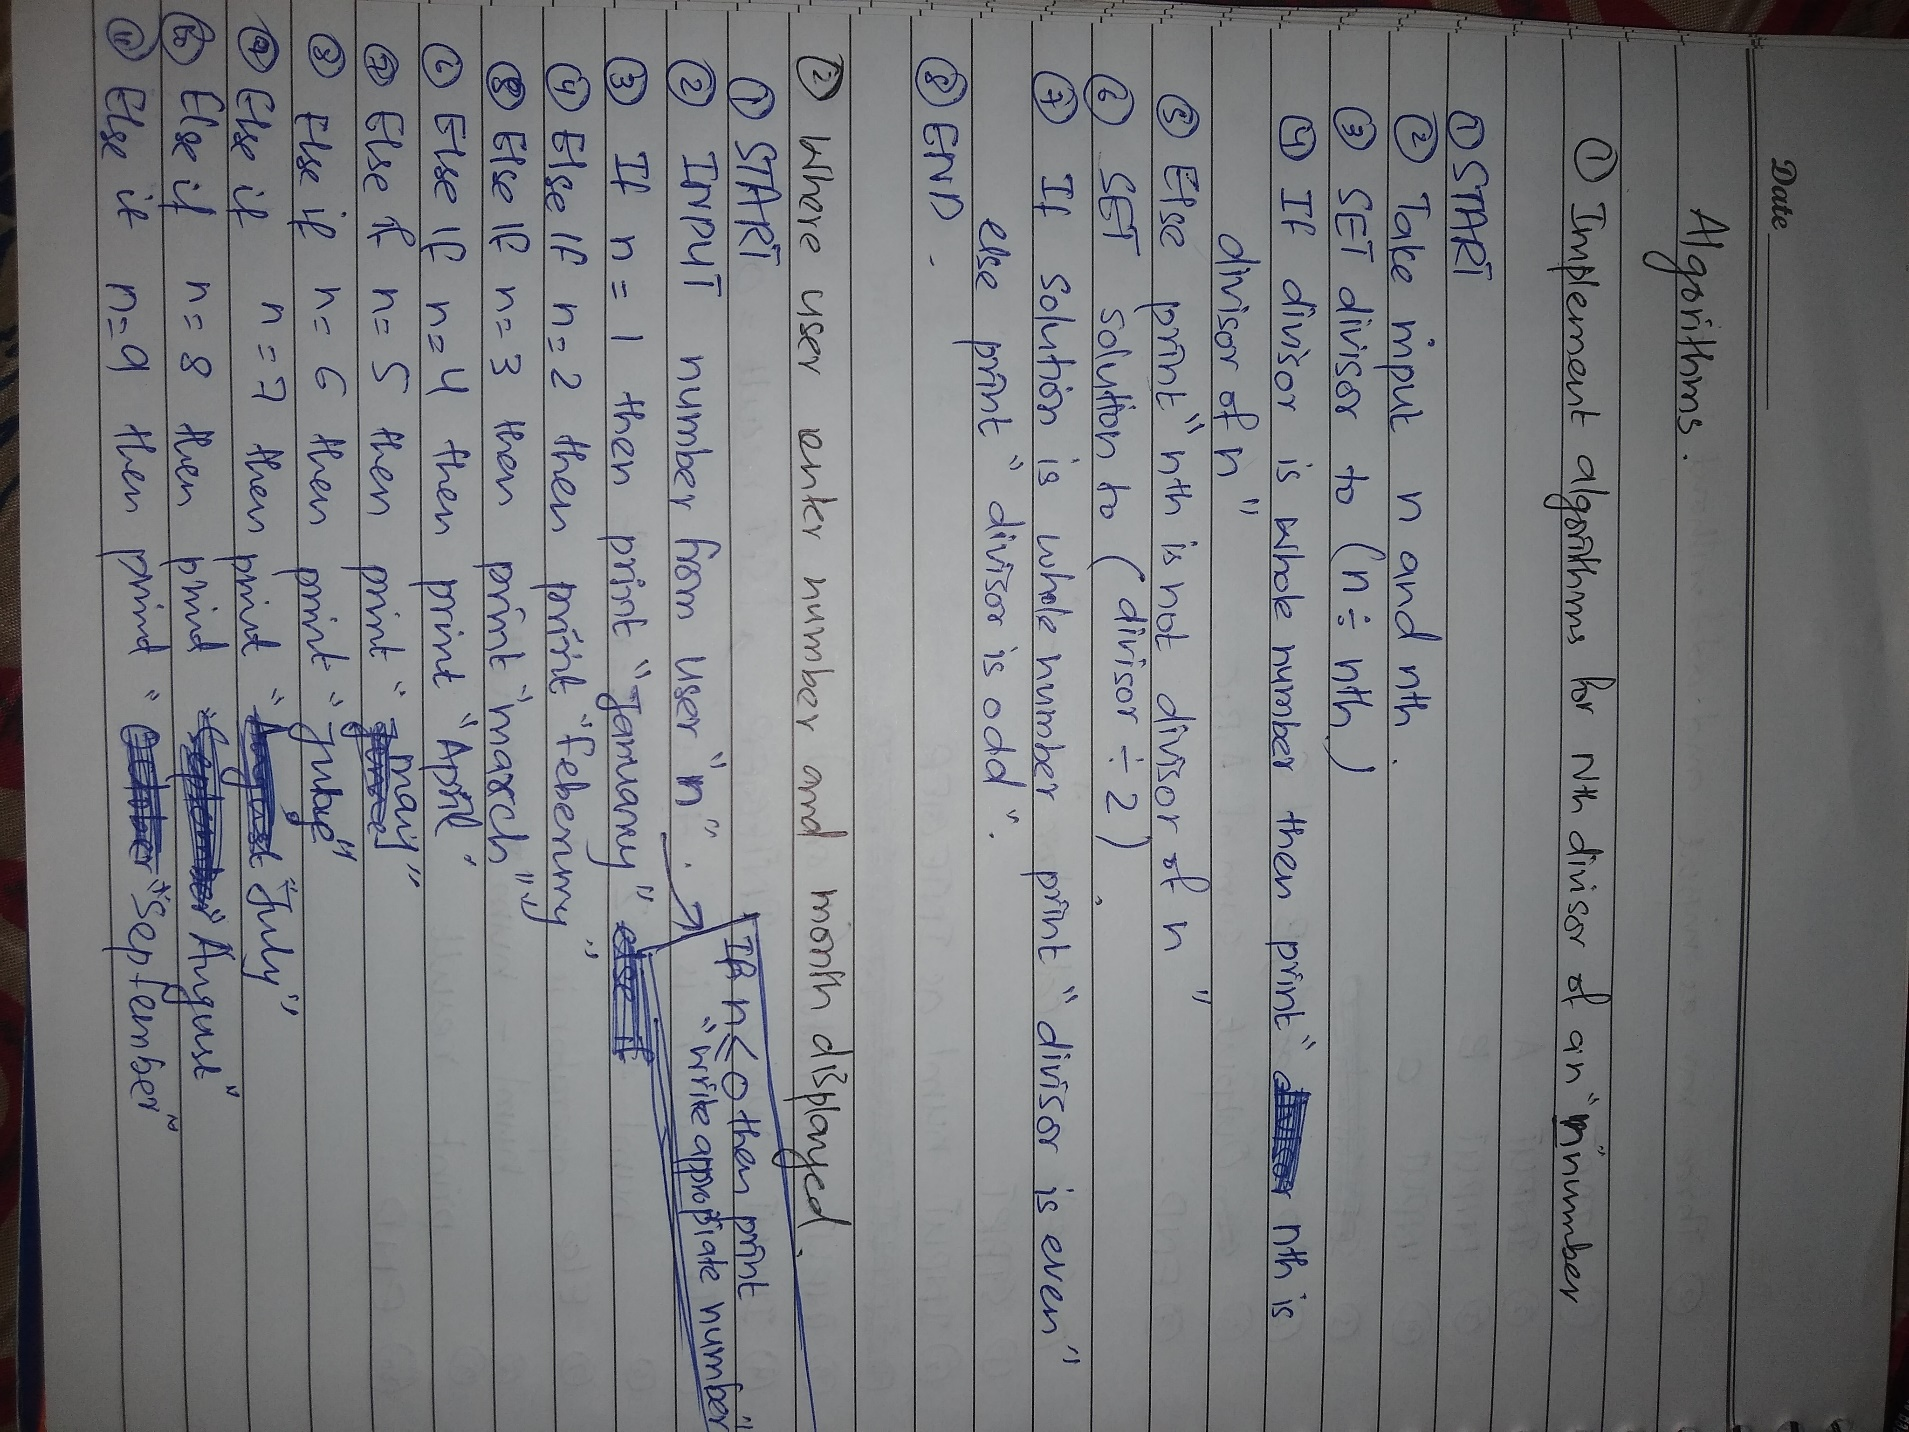 Date
Algorithms.
① Implement algorithms for Nth divisor of an "n" number
① START
② Take input n and nth.
③ SET divisor to (n ÷ nth)
④ If divisor is whole number then print " nth is
divisor of n"
⑤ Else print "nth is not divisor of n"
⑥ SET solution to (divisor ÷ 2).
⑦ If solution is whole number print "divisor is even"
else print "divisor is odd".
⑧ END.
② Where user enter number and month displayed.
① START
② INPUT number from user "n".
If n ≤ 0 then print
"write appropiate number"
③ If n = 1 then print "January" else if
④ Else If n=2 then print "feberuary"
⑤ Else If n=3 then print "march"
⑥ Else If n=4 then print "April"
⑦ Else If n=5 then print "may"
⑧ Else if n=6 then print "June"
⑨ Else if n=7 then print "August "July"
⑩ Else if n=8 then print "September "August"
⑪ Else if n=9 then print "October "September"